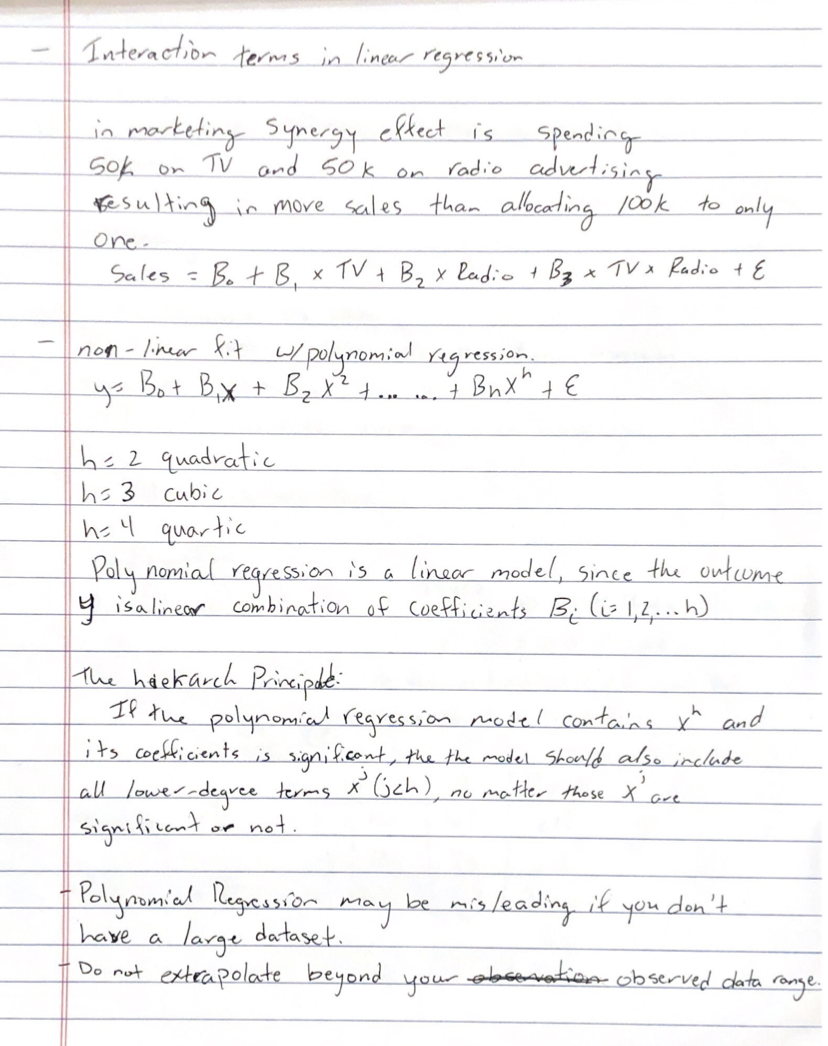 - Interaction terms in linear regression
in marketing Synergy effect is spending
50k on TV and 50k on radio advertising
resulting in more sales than allocating 100k to only
one.
Sales = B₀ + B₁ × TV + B₂ × Radio + B₃ × TV × Radio + ε
- non-linear fit w/ polynomial regression.
y = B₀ + B₁x + B₂x² + ... ... + Bhxʰ + ε
h = 2 quadratic
h = 3 cubic
h = 4 quartic
Polynomial regression is a linear model, since the outcome
y is a linear combination of coefficients Bᵢ (i = 1,2,...h)
The hierarch Principle:
If the polynomial regression model contains xʰ and
its coefficients is significant, the the model should also include
all lower-degree terms xʲ (j<h), no matter those xʲ are
significant or not.
- Polynomial Regression may be misleading if you don't
have a large dataset.
- Do not extrapolate beyond your observation observed data range.